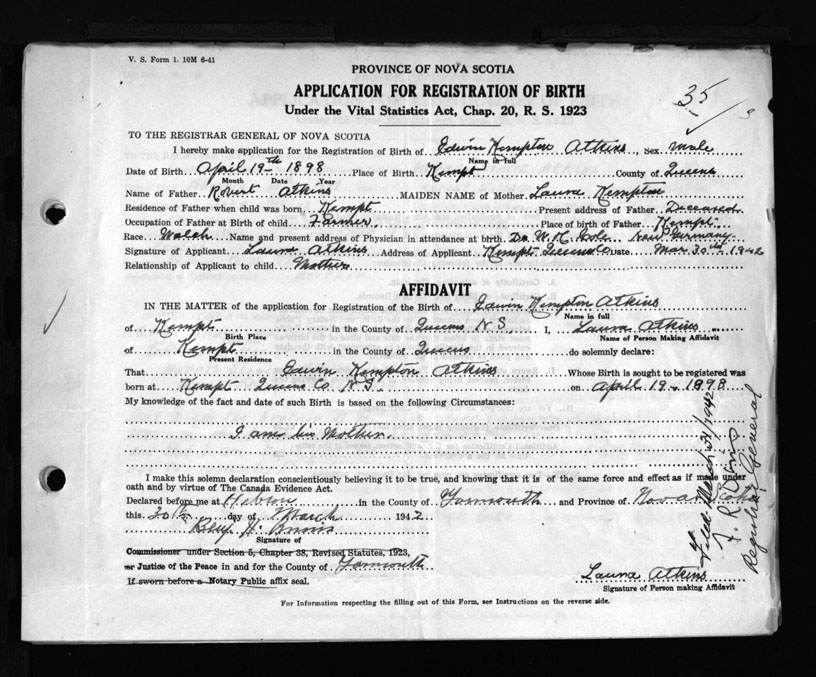 V. S. Form 1. 10M 6-41
PROVINCE OF NOVA SCOTIA
APPLICATION FOR REGISTRATION OF BIRTH
Under the Vital Statistics Act, Chap. 20, R. S. 1923
35
TO THE REGISTRAR GENERAL OF NOVA SCOTIA
I hereby make application for the Registration of Birth of Edwin Kempton Atkins, Sex male
Name in full
Date of Birth April 19th 1898 Place of Birth Kempt County of Queens
Month Date Year
Name of Father Robert Atkins MAIDEN NAME of Mother Laura Kempton
Residence of Father when child was born Kempt Present address of Father Deceased
Occupation of Father at Birth of child Farmer Place of birth of Father Kempt
Race Welsh Name and present address of Physician in attendance at birth Dr. W. H. Cole New Germany
Signature of Applicant Laura Atkins Address of Applicant Kempt Queens Co Date Mar 30th 1942
Relationship of Applicant to child Mother
AFFIDAVIT
IN THE MATTER of the application for Registration of the Birth of Edwin Kempton Atkins
Name in full
of Kempt in the County of Queens N.S. I, Laura Atkins
Birth Place Name of Person Making Affidavit
of Kempt in the County of Queens do solemnly declare:
Present Residence
That Edwin Kempton Atkins Whose Birth is sought to be registered was
born at Kempt Queens Co. N.S. on April 19 - 1898
My knowledge of the fact and date of such Birth is based on the following Circumstances:
I am his Mother.
I make this solemn declaration conscientiously believing it to be true, and knowing that it is of the same force and effect as if made under
oath and by virtue of The Canada Evidence Act.
Declared before me at Hebron in the County of Yarmouth and Province of Nova Scotia
this 30th day of March 1942
H.
Signature of
Commissioner under Section 5, Chapter 38, Revised Statutes, 1923,
or Justice of the Peace in and for the County of Yarmouth
If sworn before a Notary Public affix seal.
Laura Atkins
Signature of Person making Affidavit
For Information respecting the filling out of this Form, see Instructions on the reverse side.
Filed March 31/1942
Registrar General